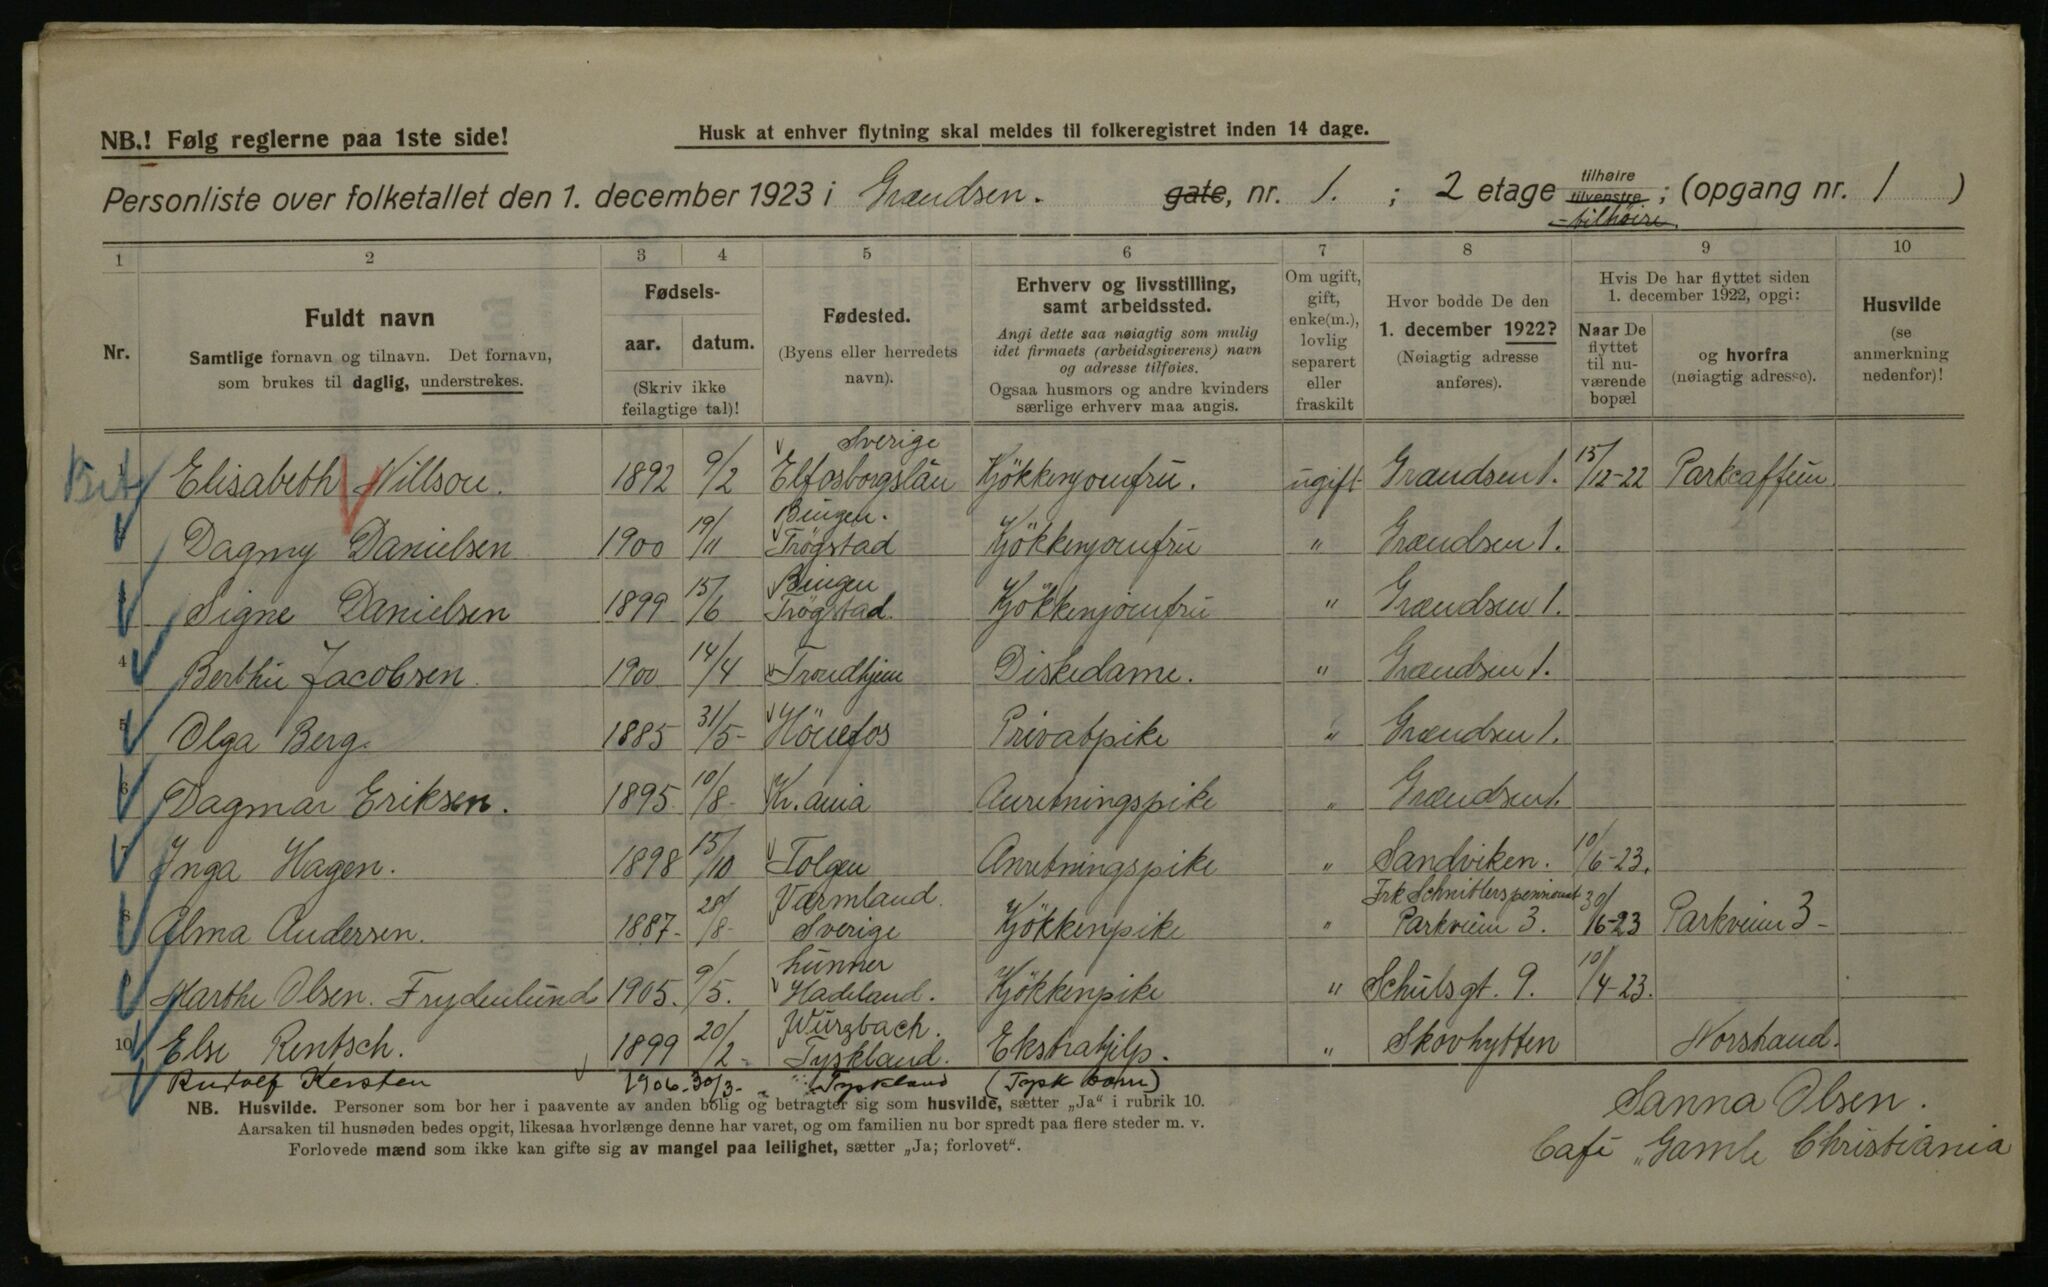 NB.! Følg reglerne paa 1ste side!
Husk at enhver flytning skal meldes til folkeregistret inden 14 dage.
Personliste over folketallet den 1. december 1923 i Grændsen. gate, nr. 1. ; 2 etage tilhøire tilvenstre ; (opgang nr. 1 )
- tilhöire.
1 2 3 4 5 6 7 8 9 10
Nr.
Fuldt navn
Samtlige fornavn og tilnavn. Det fornavn,
som brukes til daglig, understrekes.
Fødsels-
aar. datum.
(Skriv ikke
feilagtige tal)!
Fødested.
(Byens eller herredets
navn).
Erhverv og livsstilling,
samt arbeidssted.
Angi dette saa nøiagtig som mulig
idet firmaets (arbeidsgiverens) navn
og adresse tilføies.
Ogsaa husmors og andre kvinders
særlige erhverv maa angis.
Om ugift,
gift,
enke(m.),
lovlig
separert
eller
fraskilt
Hvor bodde De den
1. december 1922?
(Nøiagtig adresse
anføres).
Hvis De har flyttet siden
1. december 1922, opgi:
Naar De
flyttet
til nu-
værende
bopæl
og hvorfra
(nøiagtig adresse).
Husvilde
(se
anmerkning
nedenfor)!
Sverige
Elisabeth Nillson. 1892 9/2 Elfosborgslän Kjökkenjomfru. ugift Grændsen 1. 15/12-22 Parkcaffeen
Bingen.
Dagny Danielsen 1900 19/11 Trögstad Kjökkenjomfru " Grændsen 1.
Bingen
3 Signe Danielsen 1899 15/6 Trögstad. Kjökkenjomfru " Grændsen 1.
4 Berthe Jacobsen. 1900 14/4 Trondhjem Diskedame. " Grændsen 1.
5 Olga Berg. 1885 31/5- Hönefos Privatpike " Grændsen 1.
6 Dagmar Eriksen. 1895. 10/8- Kr.ania Anretningspike " Grændsen 1.
7 Inga Hagen. 1898 15/10 Tolgen Anretningspike " Sandviken. 10/6-23.
Værmland. Frk Schnitlers pensionat
8 Alma Andersen. 1887- 28/8- Sverige Kjökkenpike " Parkveien 3. 30/6-23 Parkveien 3-
Lunner
9 Marthe Olsen. Frydenlund 1905. 9/5. Hadeland. Kjökkenpike " Schulsgt. 9. 10/4-23.
Wurzbach.
10 Else Rentsch. 1899 20/2- Tyskland. Ekstrahjelp. " Skovhytten Norstrand.
Rudolf Kersten 1906. 30/3- Tyskland (Tysk barn)
NB. Husvilde. Personer som bor her i paavente av anden bolig og betragter sig som husvilde, sætter „Ja“ i rubrik 10.
Aarsaken til husnøden bedes opgit, likesaa hvorlænge denne har varet, og om familien nu bor spredt paa flere steder m. v.
Forlovede mænd som ikke kan gifte sig av mangel paa leilighet, sætter „Ja; forlovet“.
Sanna Olsen.
Café „Gamle Christiania